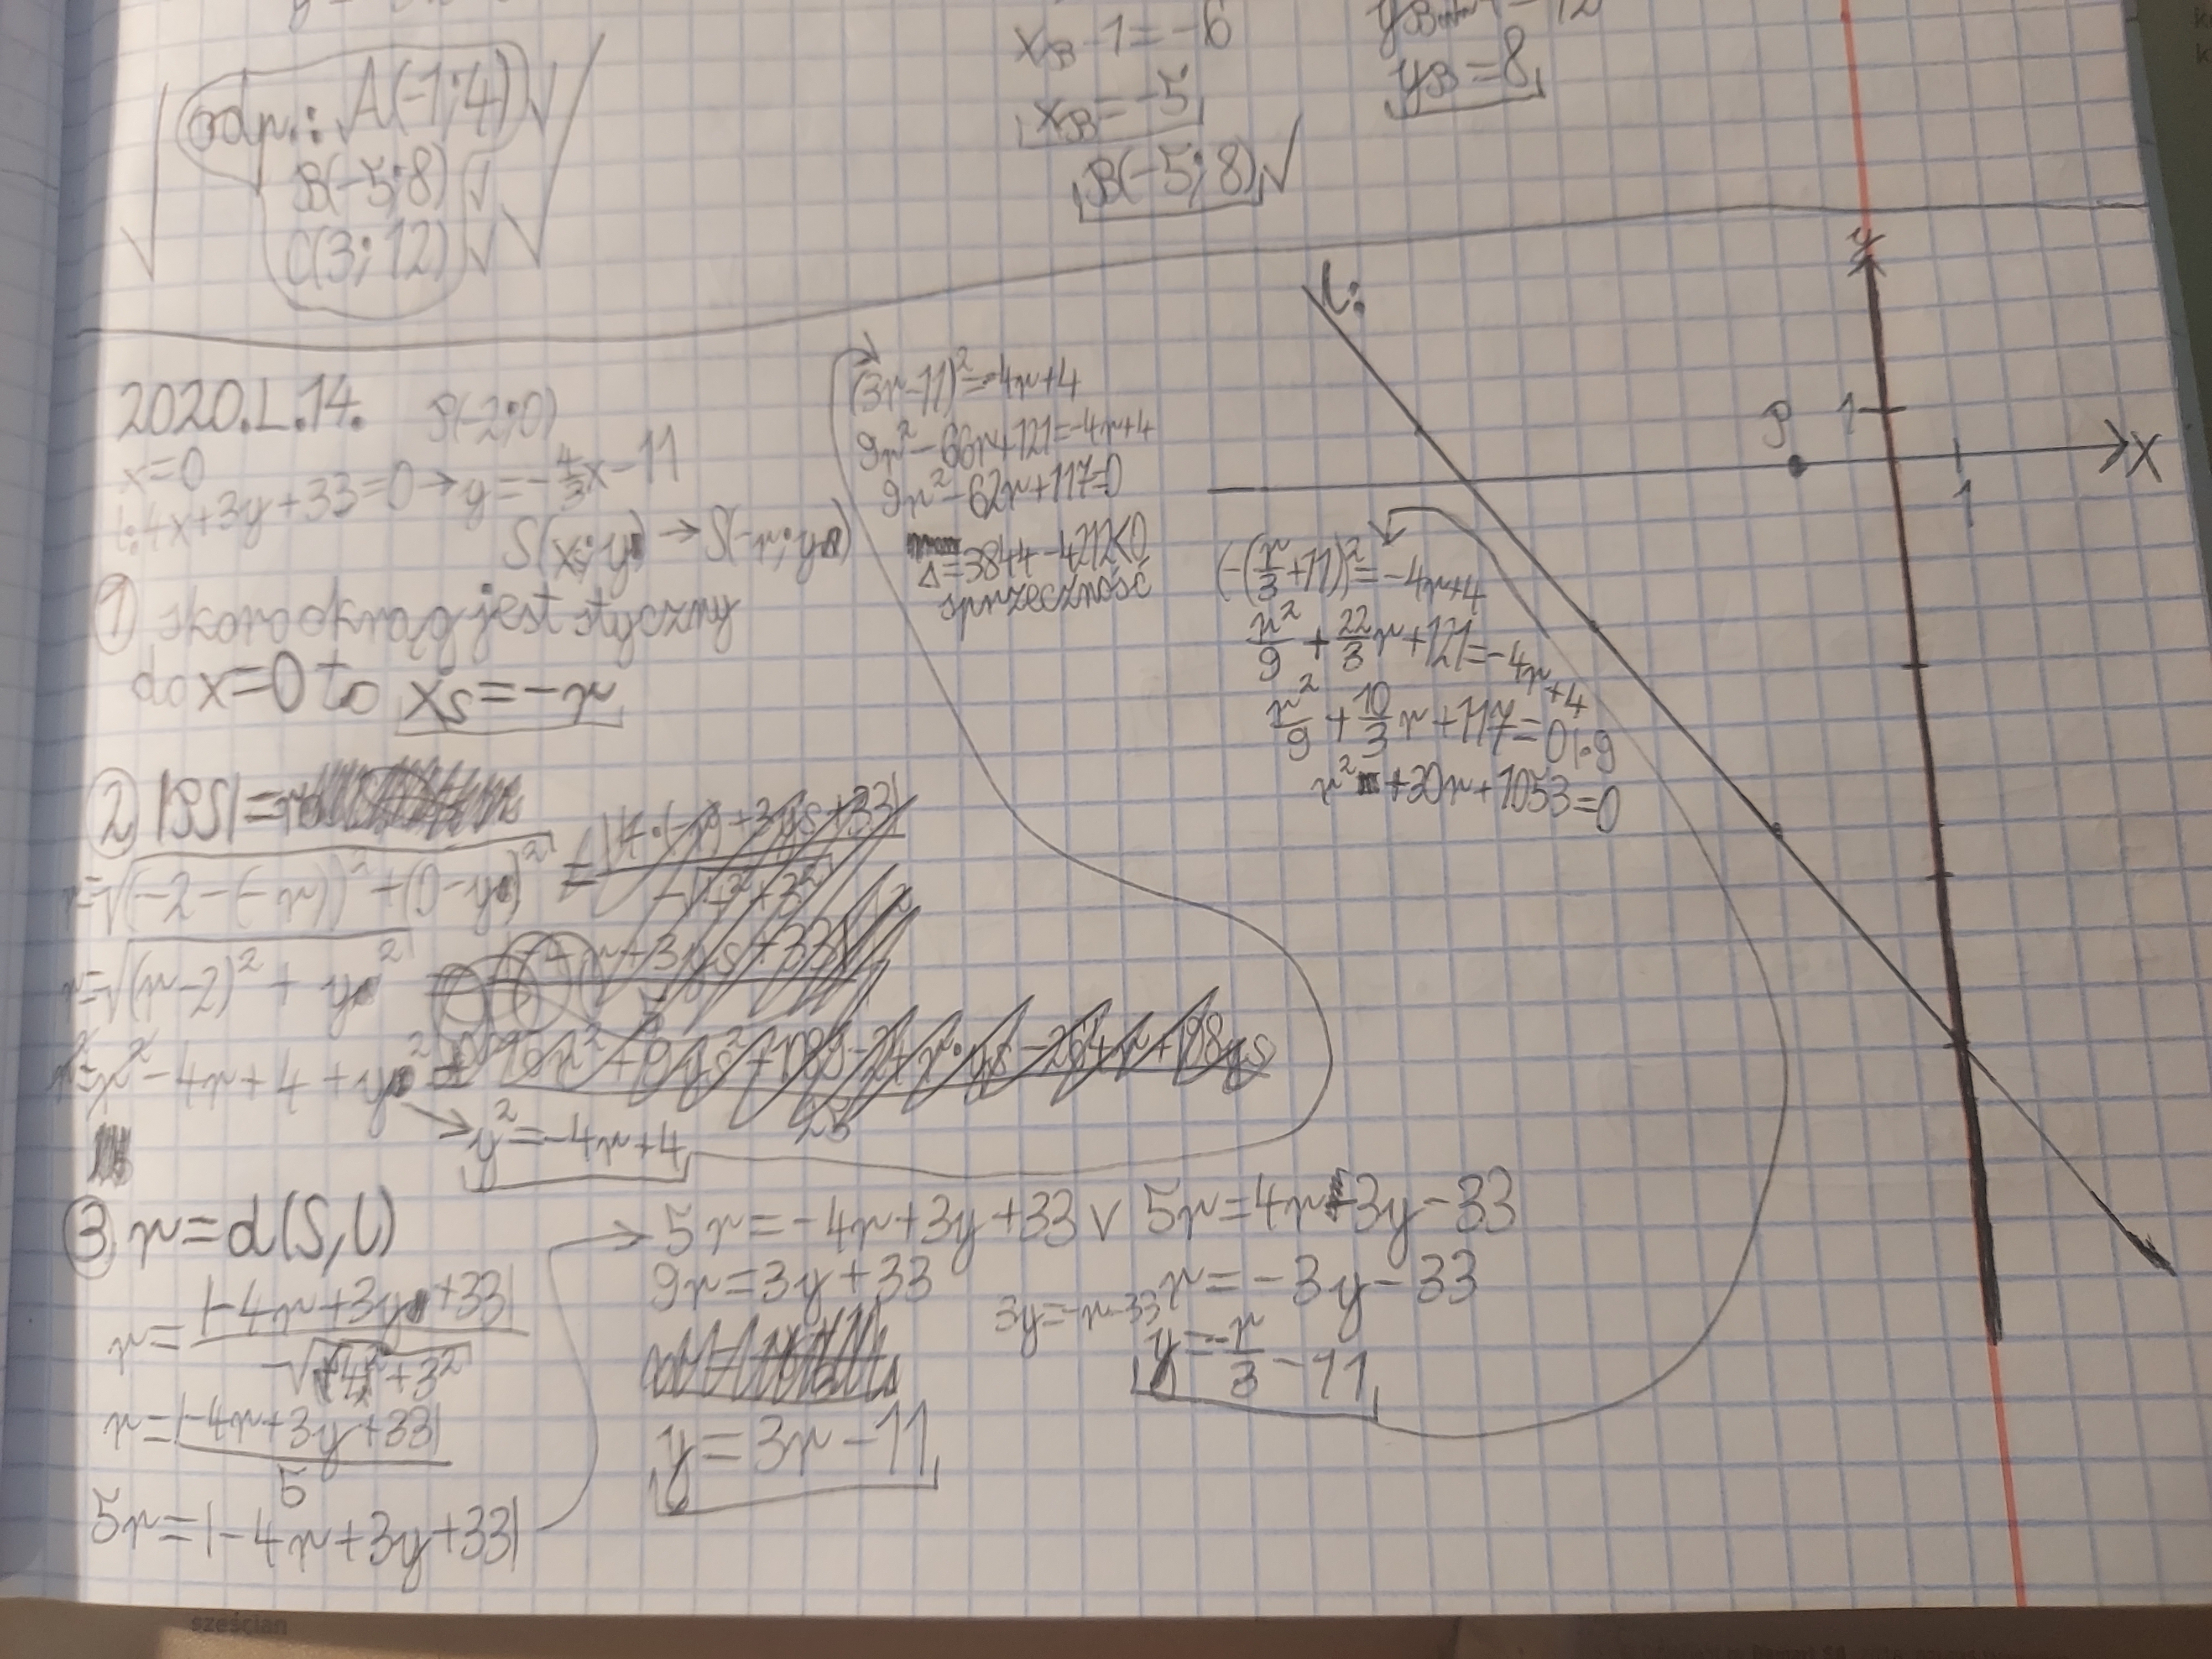 x_B-1=-6
x_B=-5
y_B=8
B(-5;8)√
odp.: A(-1;4)√
B(-5;8)√
C(3;12)√√
2020.L.14.
P(-2;0)
x=0
l:4x+3y+33=0→y=-4/3x-11
S(x_s;y)→S(-r;y)
① skoro okrąg jest styczny
do x=0 to x_s=-r
② |PS|=r
r=√(-2-(-r))²+(0-y)²
r=√(r-2)²+y²
r²=r²-4r+4+y²
y²=-4r+4
③ r=d(S,l)
r=|-4r+3y+33|/√4²+3²
r=|-4r+3y+33|/5
5r=|-4r+3y+33|
5r=-4r+3y+33 ∨ 5r=4r-3y-33
9r=3y+33
y=3r-11
r=-3y-33
3y=-r-33
y=-r/3-11
(3r-11)²=-4r+4
9r²-66r+121=-4r+4
9r²-62r+117=0
Δ=3844-4212<0
sprzeczność
(-(r/3+11))²=-4r+4
r²/9+22/3r+121=-4r+4
r²/9+10/3r+117=0|·9
r²+30r+1053=0
l:
y
P
1
X
1
sześcian